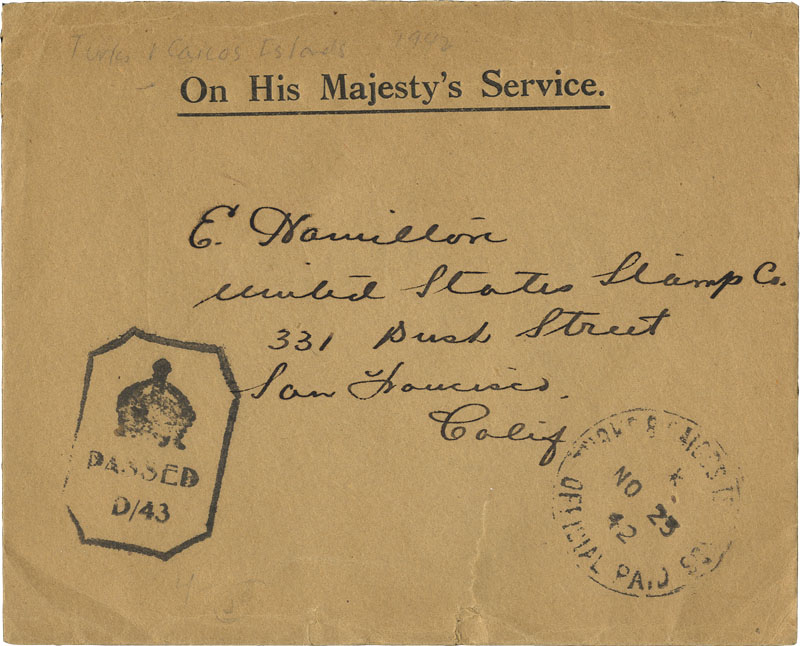 Turks & Caicos Islands 1942
On His Majesty's Service.
E. Hamilton
United States Stamp Co.
331 Bush Street
San Francisco.
Calif
PASSED
D/43
TURKS & CAICOS IS
NO 23
42
OFFICIAL PAID